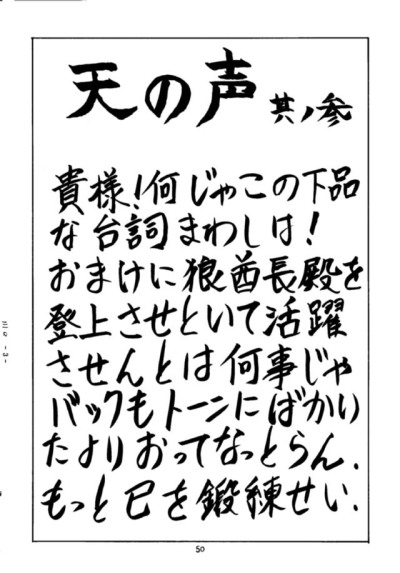 天の声 其ノ参
貴様！何じゃこの下品
な台詞まわしは！
おまけに狼酋長殿を
登上させといて活躍
させんとは何事じゃ
バックもトーンにばかい
たよりおってなっとらん．
もっと己を鍛練せい．
50